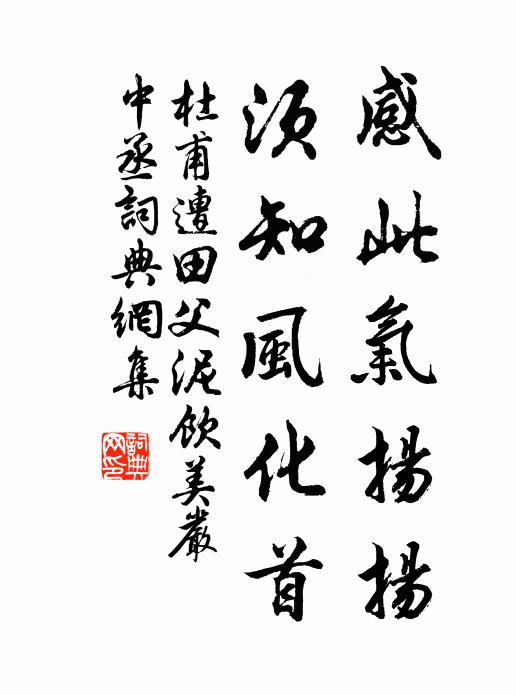 感此氣揚揚
須知風化首
杜甫遭田父泥飲美嚴
中丞詞典網集
詞典
网印